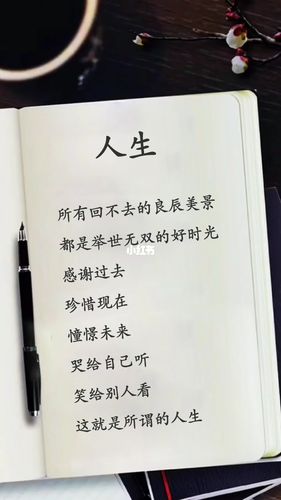 人生
所有回不去的良辰美景
都是举世无双的好时光
小红书
感谢过去
珍惜现在
憧憬未来
哭给自己听
笑给别人看
这就是所谓的人生